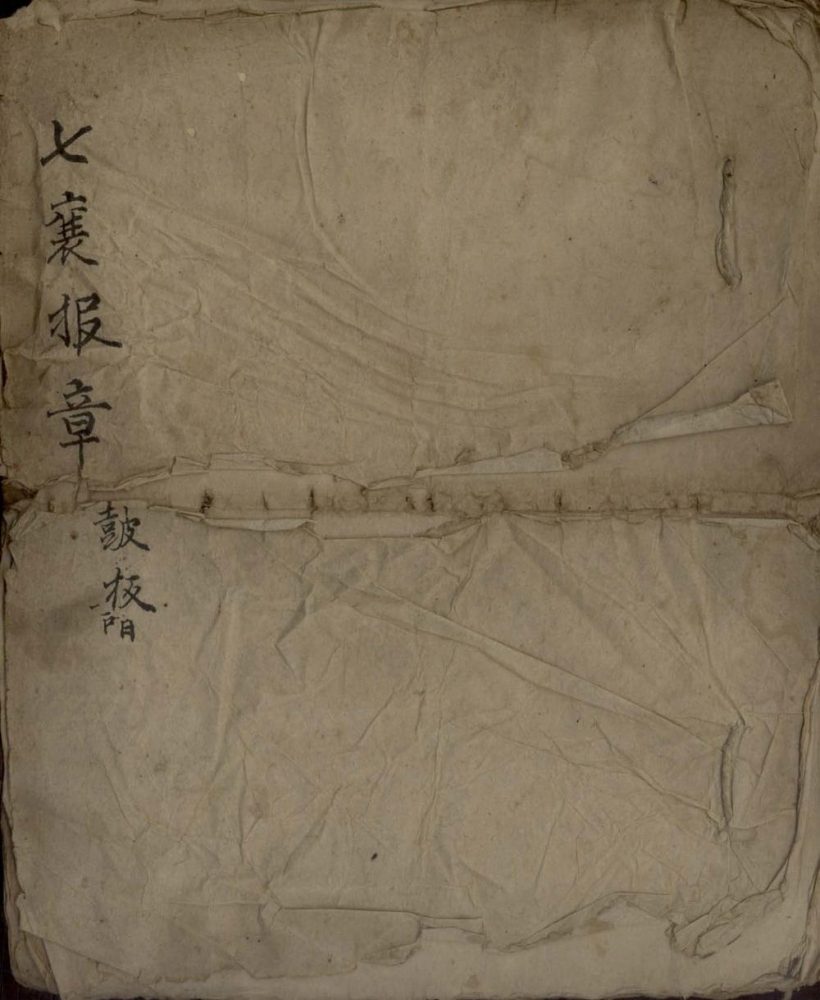 七襄报章
鼓板